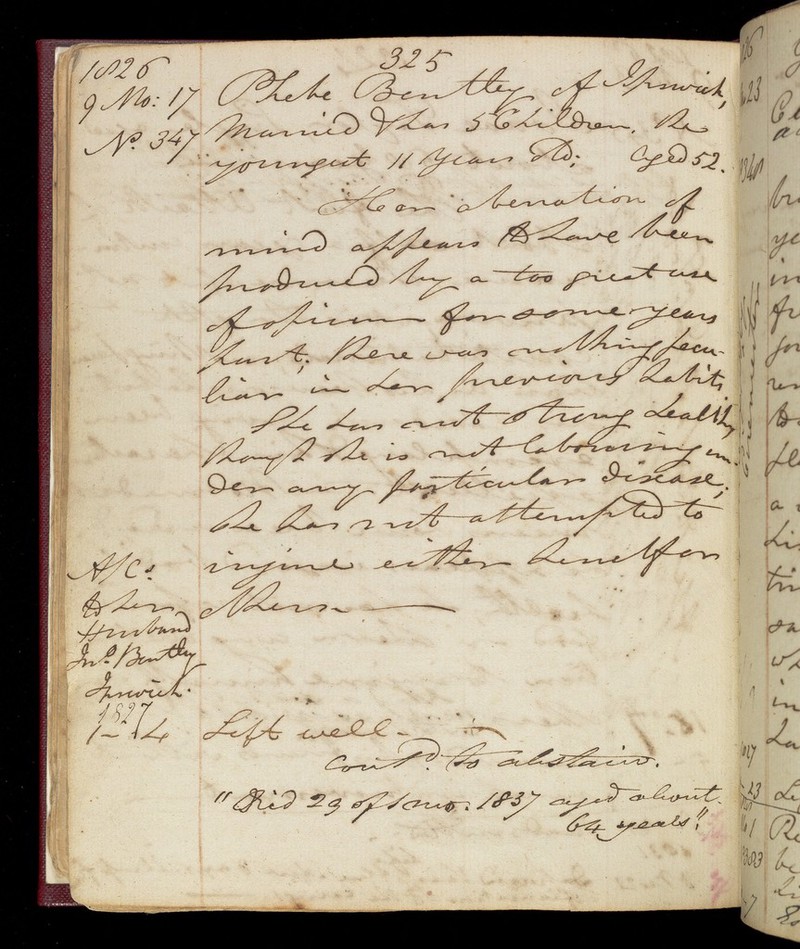 325
1826
9 Mo: 17
No. 347
Phebe Bentley of Ipswich,
Married & has 5 Children, the
youngest 11 Years old; Aged 52.
Her aberation of
mind appears to have been
produced by a too great use
of opium for some years
past; there was nothing pecu-
liar in her previous habits
She has not strong health,
though she is not labouring un-
der any particular disease;
she has not attempted to
injure either herself or
others.
A/Cs.
to her
Husband
Jno. Bentley
Ipswich.
1827
Left well.
contd. to abstain.
"Died 29 of 1 mo: 1837 aged about
64 years"